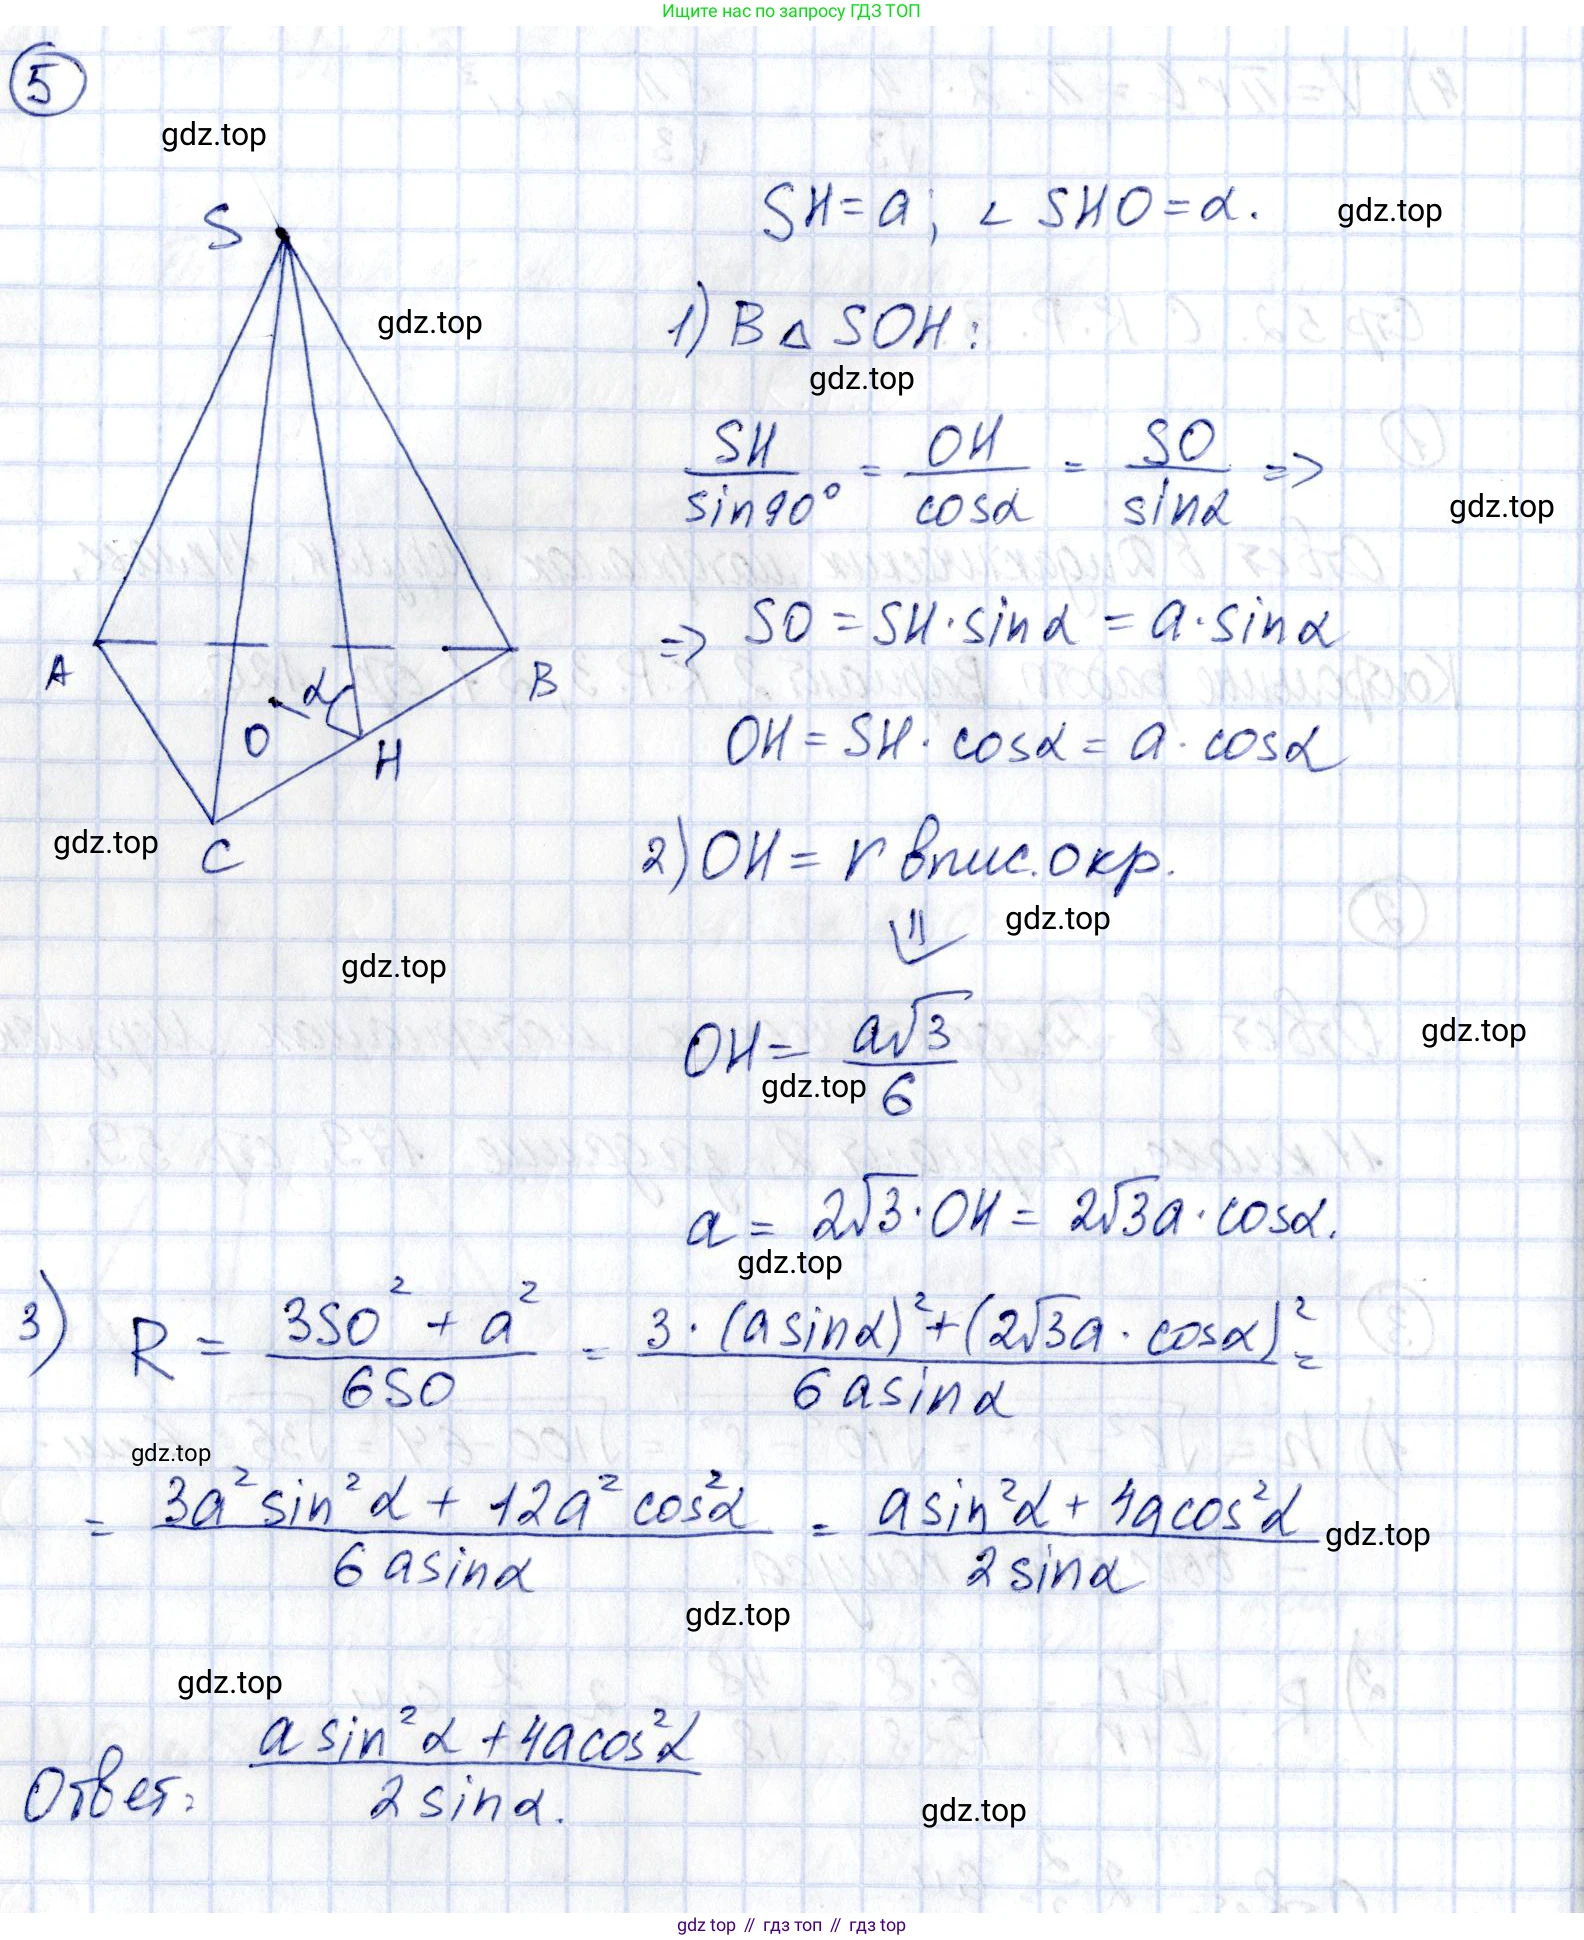 Ищите нас по запросу ГДЗ ТОП
5
gdz.top
S
SH=a; ∠ SHO=α.
gdz.top
gdz.top
1) В △ SOH:
gdz.top
SH/sin90° = OH/cosα = SO/sinα =>
gdz.top
=> SO = SH·sinα = a·sinα
A
B
α
O
H
OH = SH·cosα = a·cosα
gdz.top
C
2) OH = r впис.окр.
gdz.top
gdz.top
⇓
OH = a√3/6
gdz.top
gdz.top
a = 2√3·OH = 2√3a·cosα.
gdz.top
3) R = (3SO² + a²)/6SO = (3·(a sinα)² + (2√3a·cosα)²)/6a sinα =
gdz.top
= (3a² sin²α + 12a² cos²α)/6a sinα = (a sin²α + 4a cos²α)/2 sinα
gdz.top
gdz.top
gdz.top
Ответ: (a sin²α + 4a cos²α)/2 sinα.
gdz.top
gdz top // гдз топ // gdz top